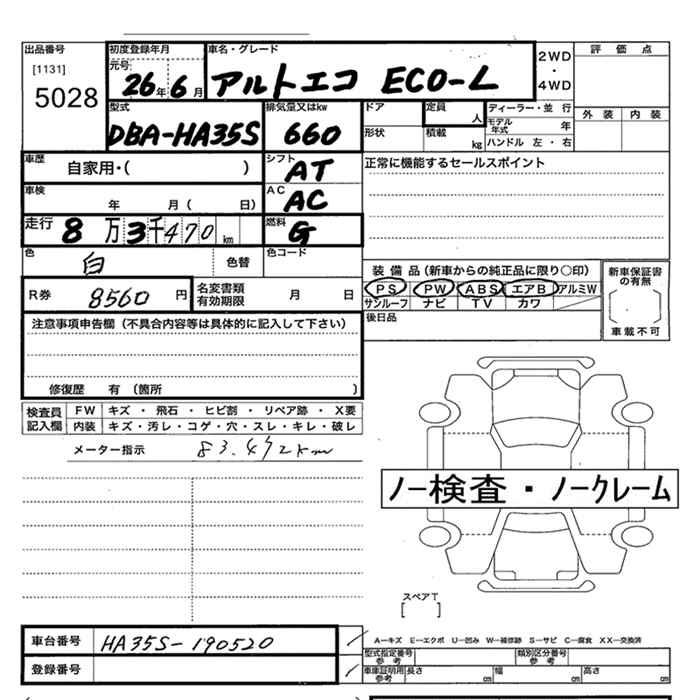 出品番号 初度登録年月 車名・グレード
[1131] 元号
5028
26年 6月 アルトエコ ECO-L
2WD
・
4WD
評価点
外装 内装
型式 排気量又はkw ドア 定員 人 ディーラー・並行
DBA-HA35S 660 形状 積載 kg モデル年式 年
ハンドル 左・右
車歴 自家用・( ) シフト AT
正常に機能するセールスポイント
車検 年 月( 日) AC AC
走行 8万3千470km 燃料 G
色 白 色替 色コード
装備品(新車からの純正品に限り○印) 新車保証書の有無
PS PW ABS エアB アルミW
サンルーフ ナビ TV カワ
車載不可
R券 8560円 名変書類有効期限 月 日
後日品
注意事項申告欄(不具合内容等は具体的に記入して下さい)
修復歴 有(箇所 )
検査員記入欄 FW キズ・飛石・ヒビ割・リペア跡・X要
内装 キズ・汚レ・コゲ・穴・スレ・キレ・破レ
メーター指示 83.472km
ノー検査・ノークレーム
スペアT
[ ]
車台番号 HA35S-190520
A―キズ E―エクボ U―凹み W―補修跡 S―サビ C―腐食 XX―交換済
型式指定番号 参考 類別区分番号 参考
登録番号 車庫証明用 参考 長さ cm 幅 cm 高さ cm